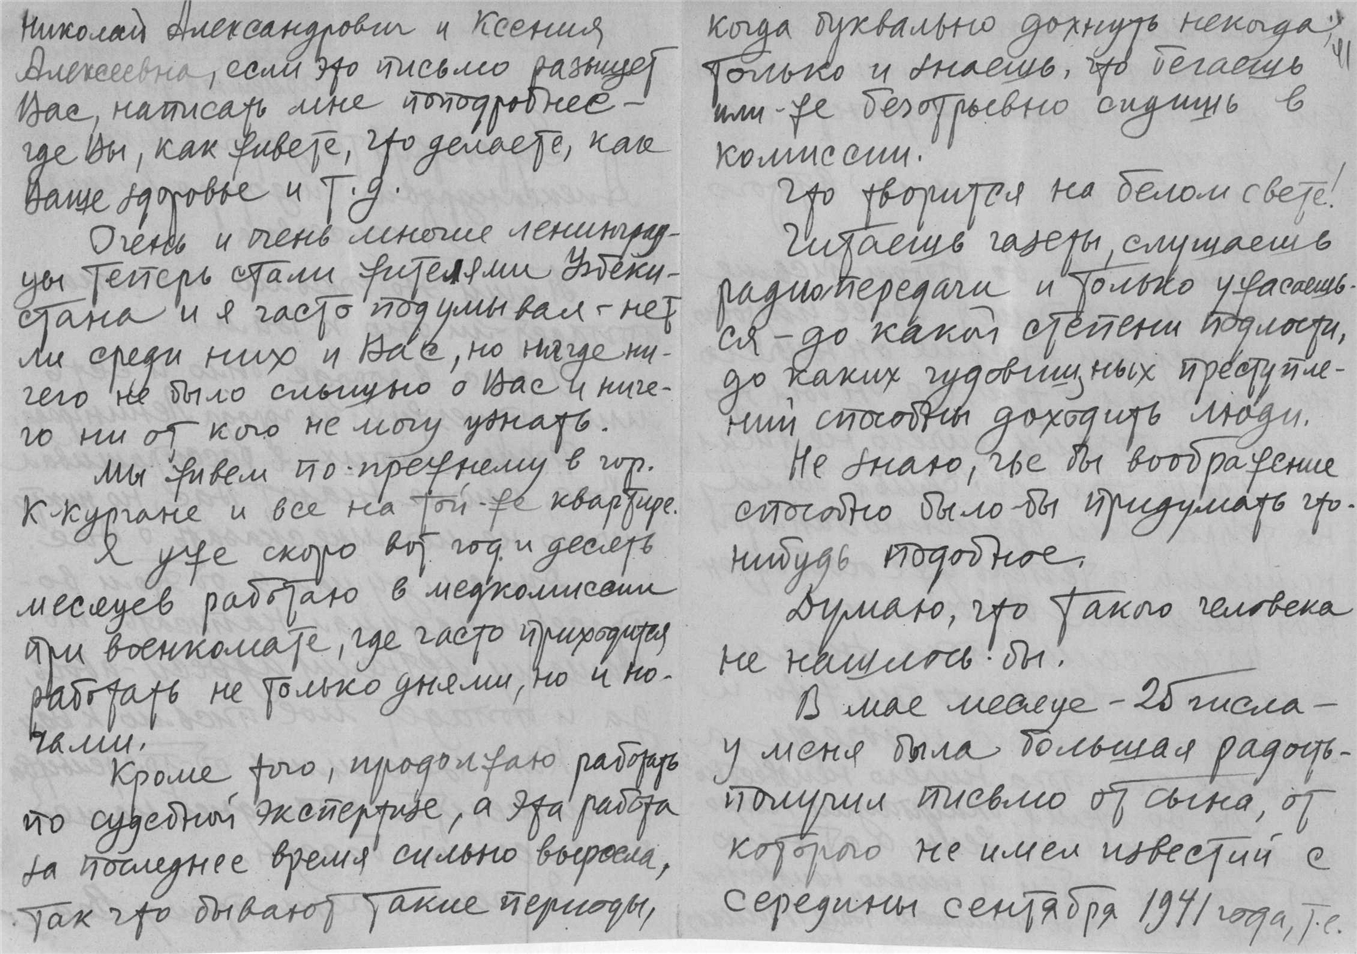 Николай Александрович и Ксения
Алексеевна, если это письмо разыщет
Вас, написать мне поподробнее –
где Вы, как живете, что делаете, как
Ваше здоровье и т.д.
Очень и очень многие ленинград-
цы теперь стали жителями Узбеки-
стана и я часто подумывал – нет
ли среди них и Вас, но нигде ни-
чего не было слышно о Вас и ниче-
го ни от кого не могу узнать.
Мы живем по-прежнему в гор.
К-Кургане и все на той-же квартире.
Я уже скоро вот год и десять
месяцев работаю в медкомиссии
при военкомате, где часто приходится
работать не только днями, но и но-
чами.
Кроме того, продолжаю работать
по судебной экспертизе, а эта работа
за последнее время сильно выросла,
так что бывают такие периоды,
когда буквально дохнуть некогда,
только и знаешь, что бегаешь
или-же безотрывно сидишь в
комиссии.
Что творится на белом свете!
Читаешь газеты, слушаешь
радиопередачи и только ужасаешь-
ся – до какой степени подлости,
до каких чудовищных преступле-
ний способны доходить люди.
Не знаю, чье бы воображение
способно было-бы придумать что-
нибудь подобное.
Думаю, что такого человека
не нашлось-бы.
В мае месяце – 25 числа –
у меня была большая радость –
получил письмо от сына, от
которого не имел известий с
середины сентября 1941 года, т.е.